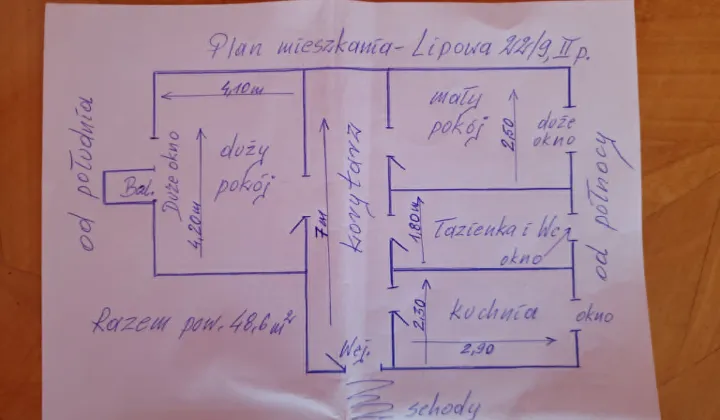 Plan mieszkania - Lipowa 22/9, II p.
4,10m
mały
pokój
duże
okno
2,50
od południa
Bal.
Duże okno
duży
pokój
4,20m
7m
korytarz
1,80m
Łazienka i Wc
okno
od północy
Razem pow. 48,6 m²
Wej.
2,30
kuchnia
2,90
okno
schody